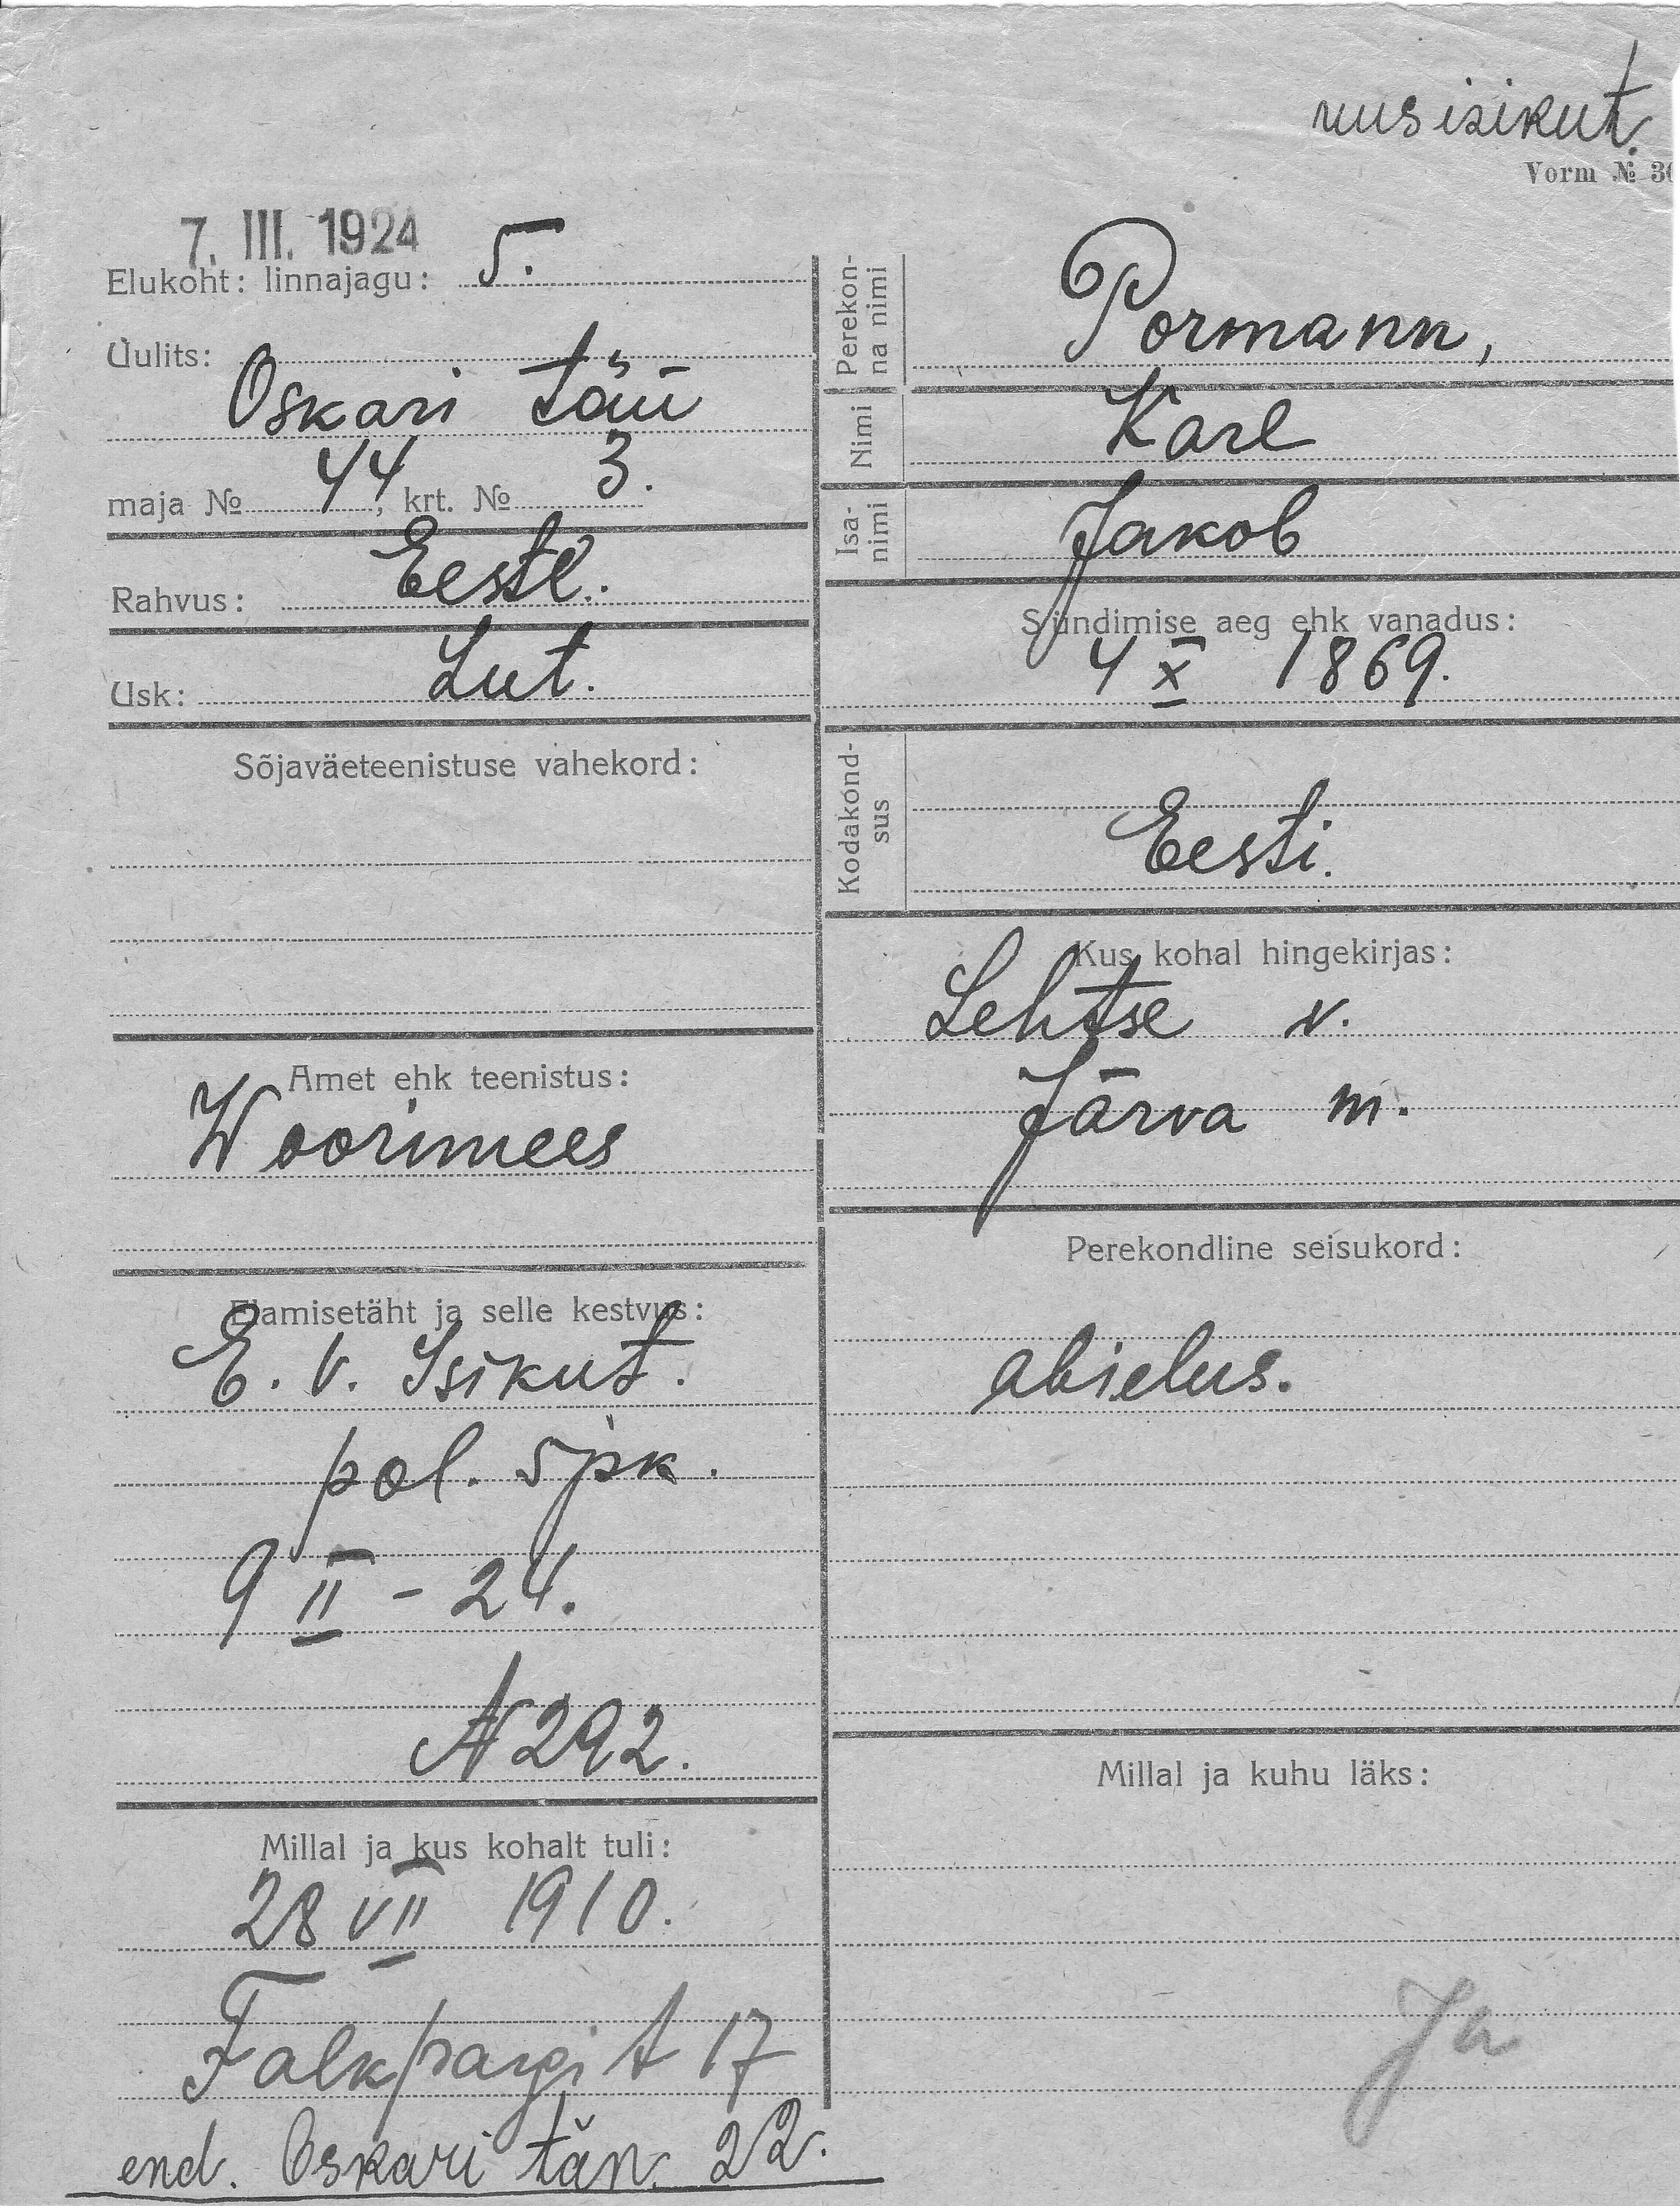 uus isikut.
Vorm № 30
7. III. 1924
Elukoht: linnajagu: 5.
Uulits:
Oskari tän
maja № 44, krt. № 3.
Rahvus: Eestl.
Usk: Lut.
Sõjaväeteenistuse vahekord:
Amet ehk teenistus:
Woorimees
Elamisetäht ja selle kestvus:
E. V. Isikut.
pol. 5jsk.
9 II - 24.
N 292.
Millal ja kus kohalt tuli:
28 VII 1910.
Falkpargi t 17
end. Oskari tän. 22.
Perekon-
na nimi
Pormann,
Nimi Karl
Isa-
nimi
Jakob
Sündimise aeg ehk vanadus:
4 X 1869.
Kodakond-
sus
Eesti.
Kus kohal hingekirjas:
Lehtse v.
Järva m.
Perekondline seisukord:
abielus.
Millal ja kuhu läks:
Ja